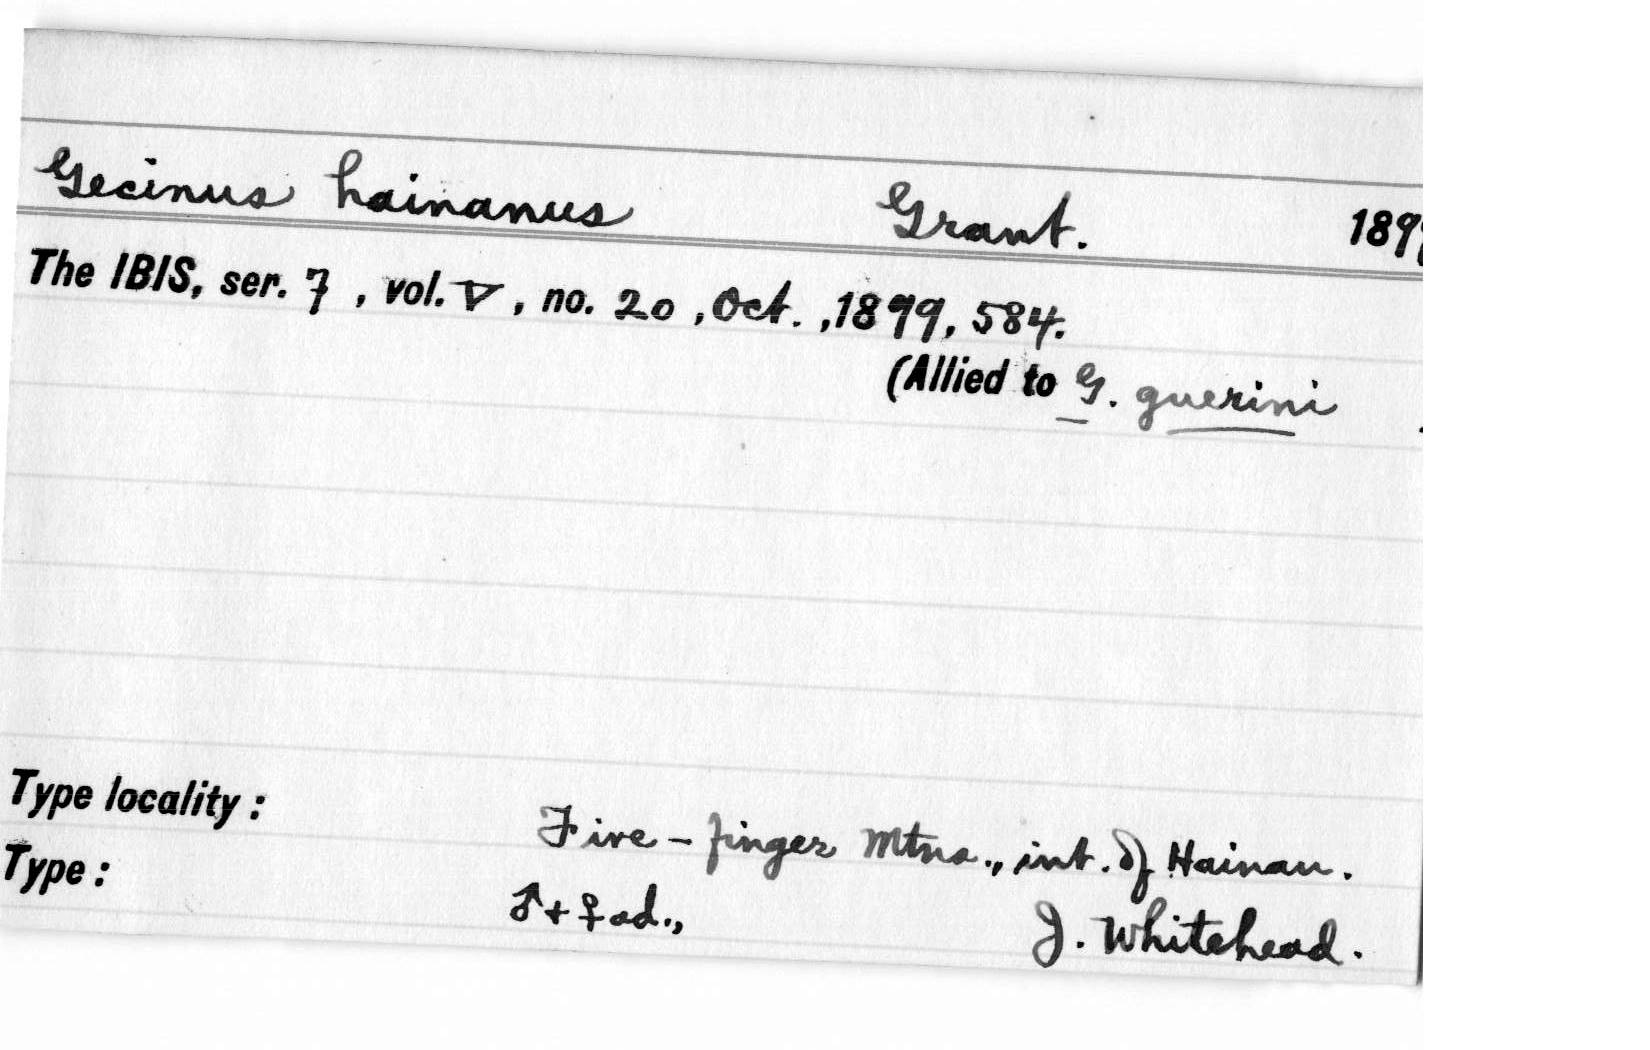 Gecinus hainanus Grant. 1899
The IBIS, ser. 7, vol. V, no. 20, Oct., 1899, 584.
(Allied to G. guerini
Type locality:
Five-finger Mtns., int. of Hainan.
Type:
♂ + ♀ ad., J. Whitehead.